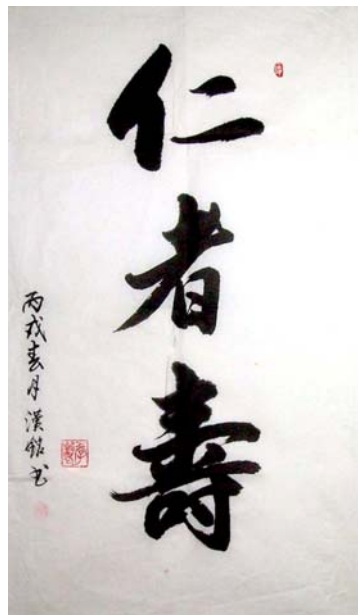 仁者壽
丙戌春月漢銘书